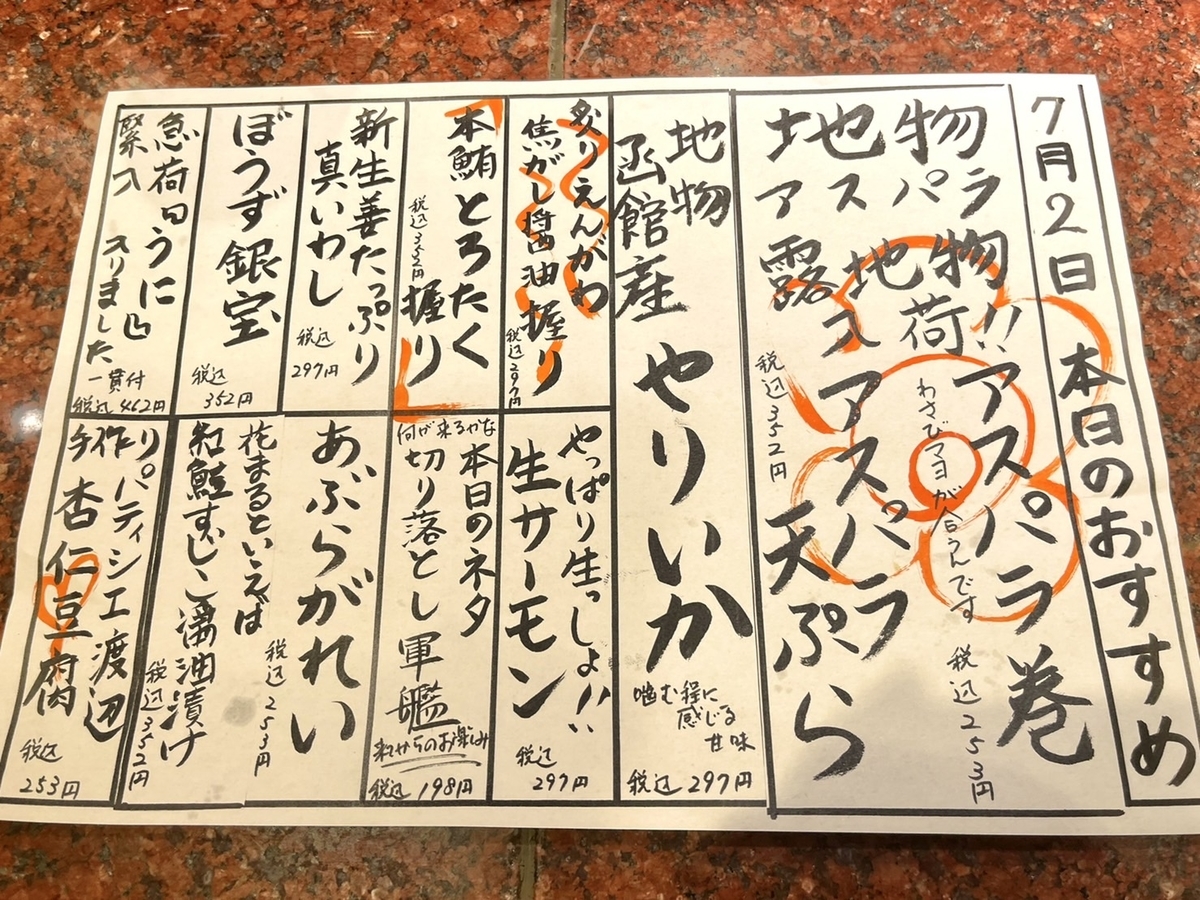 7月2日 本日のおすすめ
物!!アスパラ巻
わさびマヨが合うんです
税込253円
アスパラ
天ぷら
税込352円
地物
函館産 やりいか
噛む程に
感じる
甘味
税込297円
炙りえんがわ
焦がし醤油握り
税込297円
やっぱり生っしょ!!
生サーモン
税込297円
本鮪とろたく
握り
税込352円
何が来るかな
本日のネタ
切り落とし軍艦
来てからのお楽しみ
税込198円
新生姜たっぷり
真いわし
税込297円
あぶらがれい
税込253円
ぼうず銀宝
税込
352円
花まるといえば
紅鮭すじこ醤油漬け
税込352円
うに
入りました
一貫付
税込462円
手作りパティシエ渡辺
杏仁豆腐
税込
253円